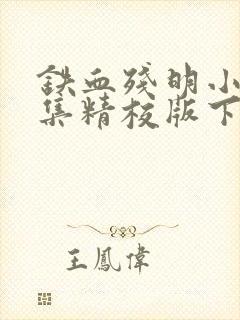 鉄血残明小
集精校版下
王鳳偉